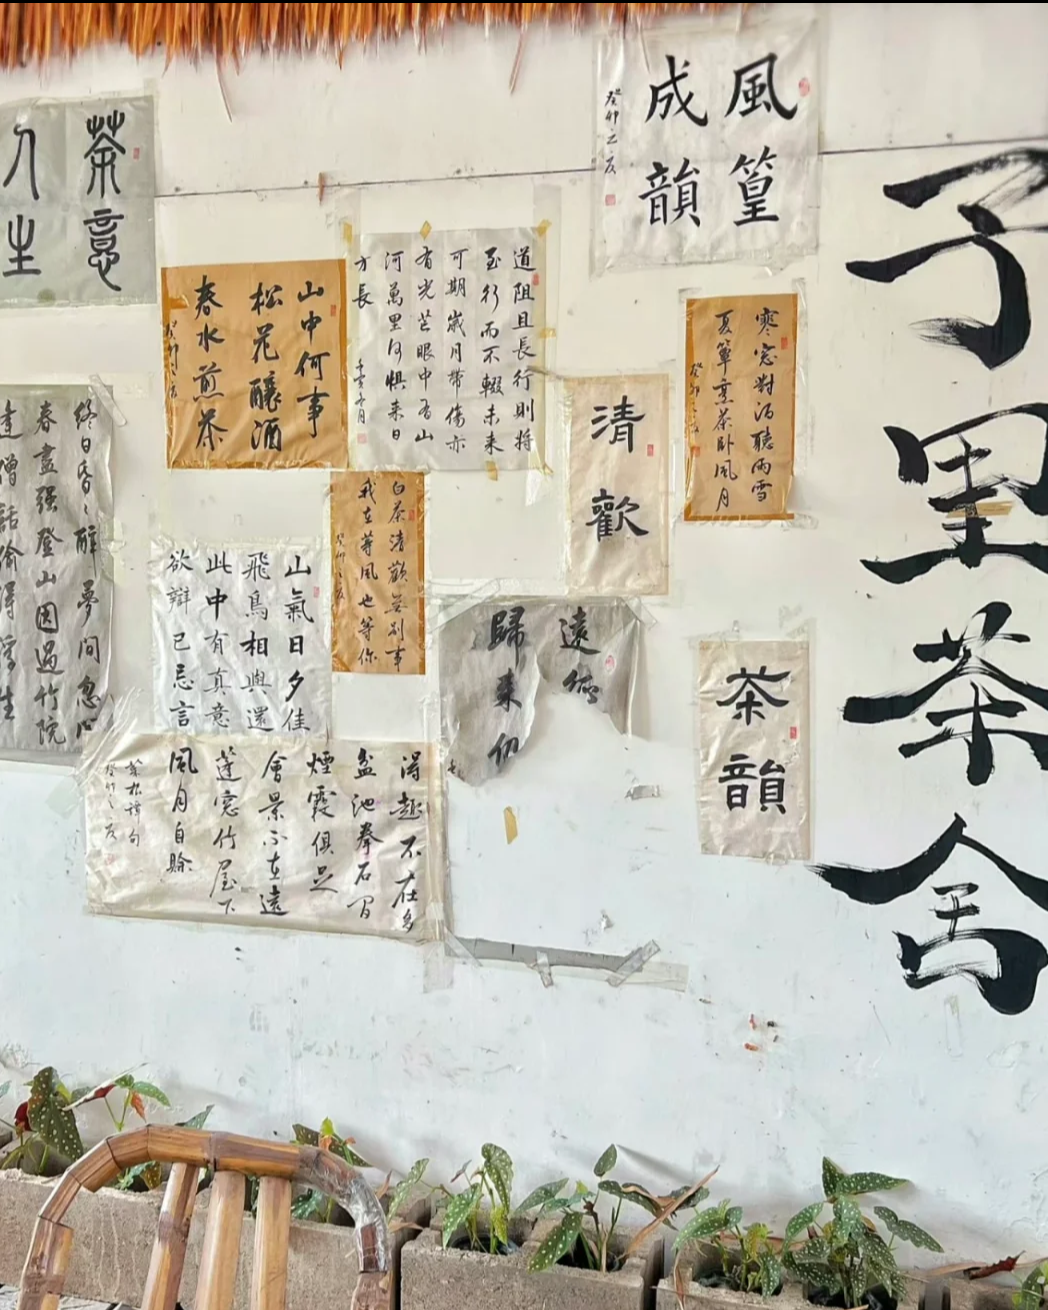 子里茶舍
風篁
成韻
癸卯之夏
寒窓對酒聽雨雪
夏簟烹茶卧風月
癸卯之夏
清歡
茶韻
道阻且長行則將
至行而不輟未来
可期歲月帶傷亦
有光芒眼中有山
河萬里何惧来日
方長
山中何事
松花釀酒
春水煎茶
白茶清歡無别事
我在等風也等你
癸卯之夏
遠
歸来仍
山氣日夕佳
飛鳥相與還
此中有真意
欲辯已忘言
得趣不在多
盆池拳石間
煙霞俱足
會景不在遠
蓬窓竹屋下
風月自賒
菜根譚句
癸卯之夏
茶意
人生
終日昏〻醉夢間忽
春盡强登山因過竹院
逢僧話偷得浮生